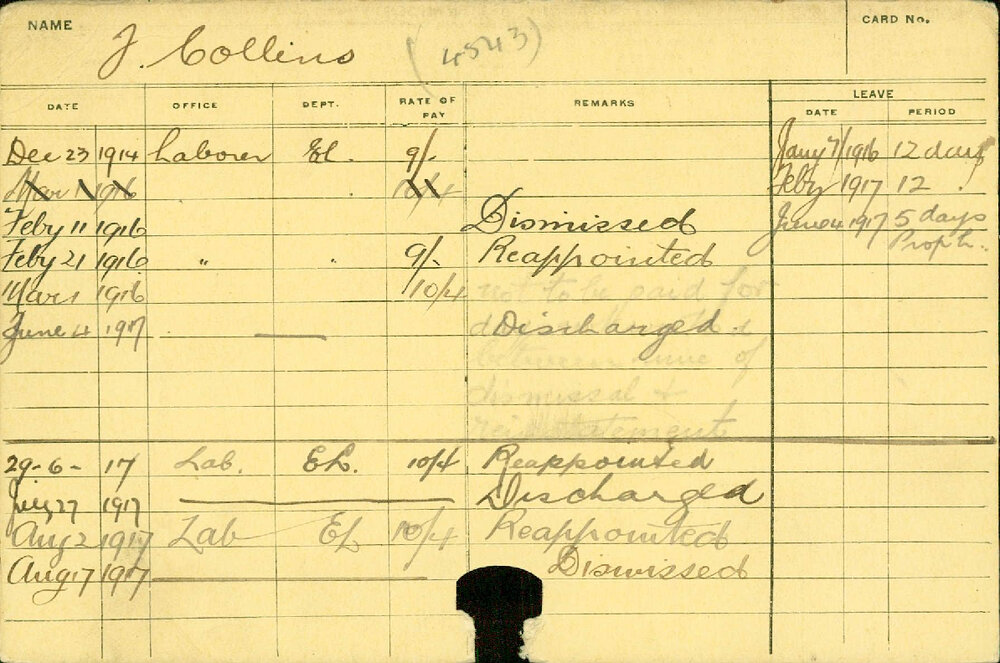 NAME J. Collins (4543) CARD No.
DATE OFFICE DEPT. RATE OF PAY REMARKS LEAVE
DATE PERIOD
Dec 23 1914 Laborer El. 9/- Jany 7/1916 12 days
Mar 1 1916 10/4 Feby 1917 12 "
Feby 11 1916 Dismissed June 4 1917 5 days
Feby 21 1916 " " 9/- Reappointed Prop L.
Mar 1 1916 10/4 not to be paid for
June 4 1917 Discharged.
between time of
dismissal &
reinstatement
29-6-17 Lab. EL. 10/4 Reappointed
July 27 1917 Discharged
Aug 2 1917 Lab EL 10/4 Reappointed
Aug 17 1917 Dismissed